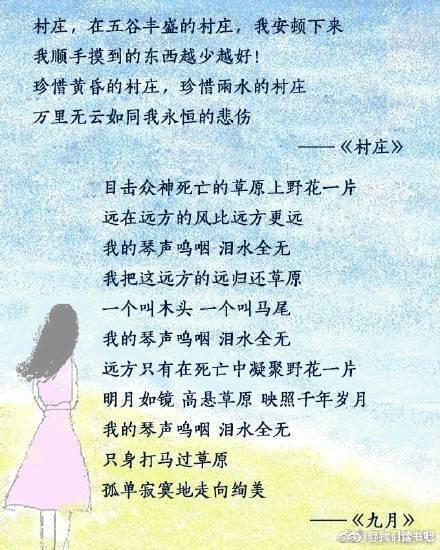 村庄，在五谷丰盛的村庄，我安顿下来
我顺手摸到的东西越少越好！
珍惜黄昏的村庄，珍惜雨水的村庄
万里无云如同我永恒的悲伤
——《村庄》
目击众神死亡的草原上野花一片
远在远方的风比远方更远
我的琴声呜咽 泪水全无
我把这远方的远归还草原
一个叫木头 一个叫马尾
我的琴声呜咽 泪水全无
远方只有在死亡中凝聚野花一片
明月如镜 高悬草原 映照千年岁月
我的琴声呜咽 泪水全无
只身打马过草原
孤单寂寞地走向绚美
——《九月》
@我们读书吧